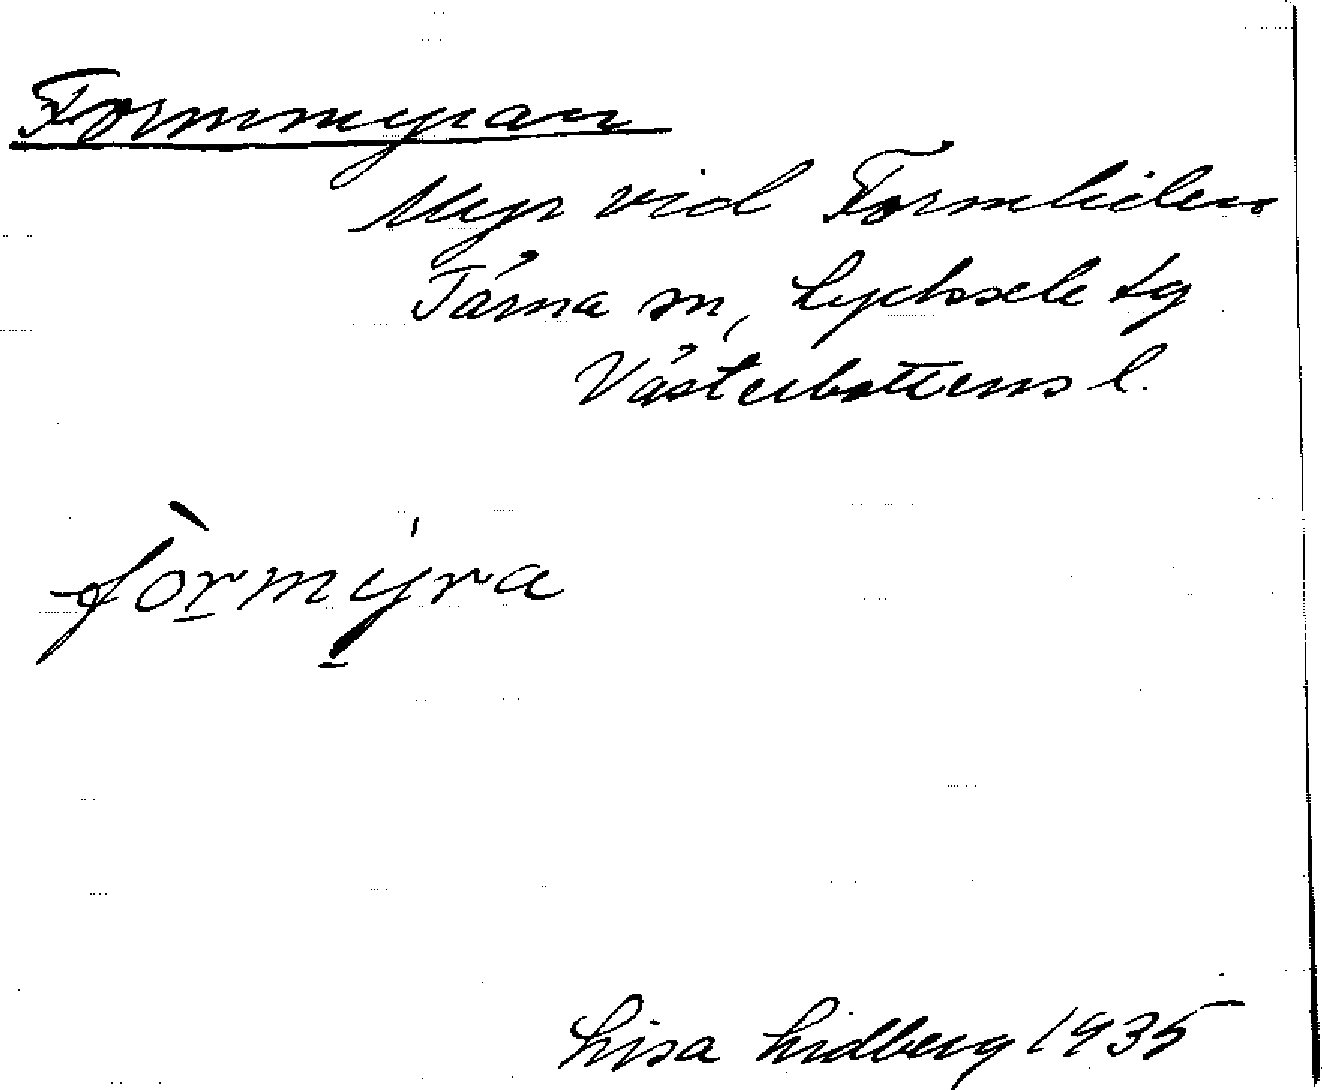 Formmyran
Myr vid Formliden
Tärna sn, Lycksele tg
Västerbottens l.
fòrmýra
Lisa Lidberg 1935